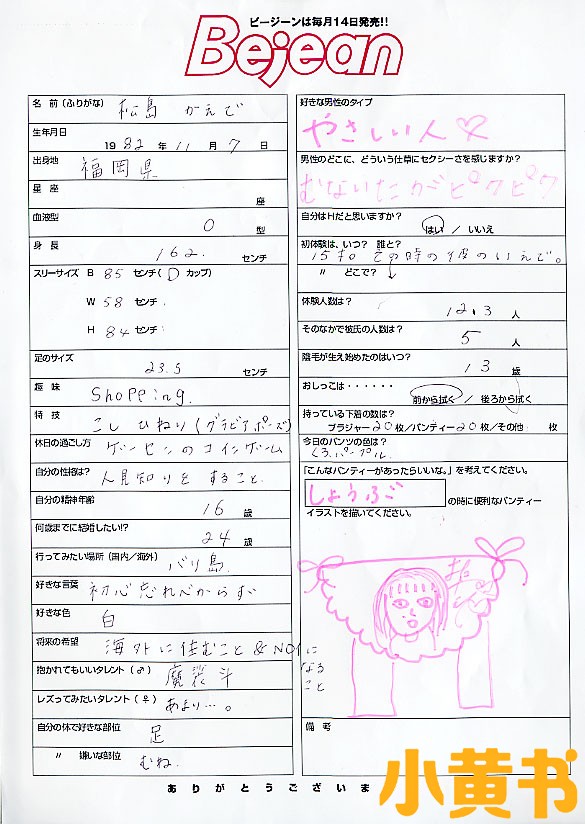 ビージーンは毎月14日発売!!
Bejean
名 前 (ふりがな) 松島 かえで
生年月日 1982年 11月 7日
出身地 福岡県
星 座 座
血液型 O 型
身 長 162. センチ
スリーサイズ B 85 センチ ( D カップ)
W 58 センチ
H 84 センチ
足のサイズ 23.5 センチ
趣 味 Shopping.
特 技 こしひねり (グラビアポーズ)
休日の過ごし方 ゲーセンのコインゲーム
自分の性格は? 人見知りをすること
自分の精神年齢 16 歳
何歳までに結婚したい!? 24 歳
行ってみたい場所 (国内／海外) バリ島
好きな言葉 初心忘れべからず
好きな色 白
将来の希望 海外に住むこと & NO1になること
抱かれてもいいタレント (♂) 魔裟斗
レズってみたいタレント (♀) あまり…。
自分の体で好きな部位 足
〃 嫌いな部位 むね.
好きな男性のタイプ
やさしい人♡
男性のどこに、どういう仕草にセクシーさを感じますか?
むないたがピクピク
自分はHだと思いますか?
はい ／ いいえ
体験人数は? 12.3 人
そのなかで彼氏の人数は? 5 人
おしっこは・・・・・・ 前から拭く ／ 後ろから拭く
持っている下着の数は?
ブラジャー 20 枚／パンティー 20 枚／その他 枚
今日のパンツの色は?
くろ.パープル.
「こんなパンティーがあったらいいな。」を考えてください。
しょうぶご の時に便利なパンティー
イラストを描いてください。
備 考
ありがとうございま
小黄书